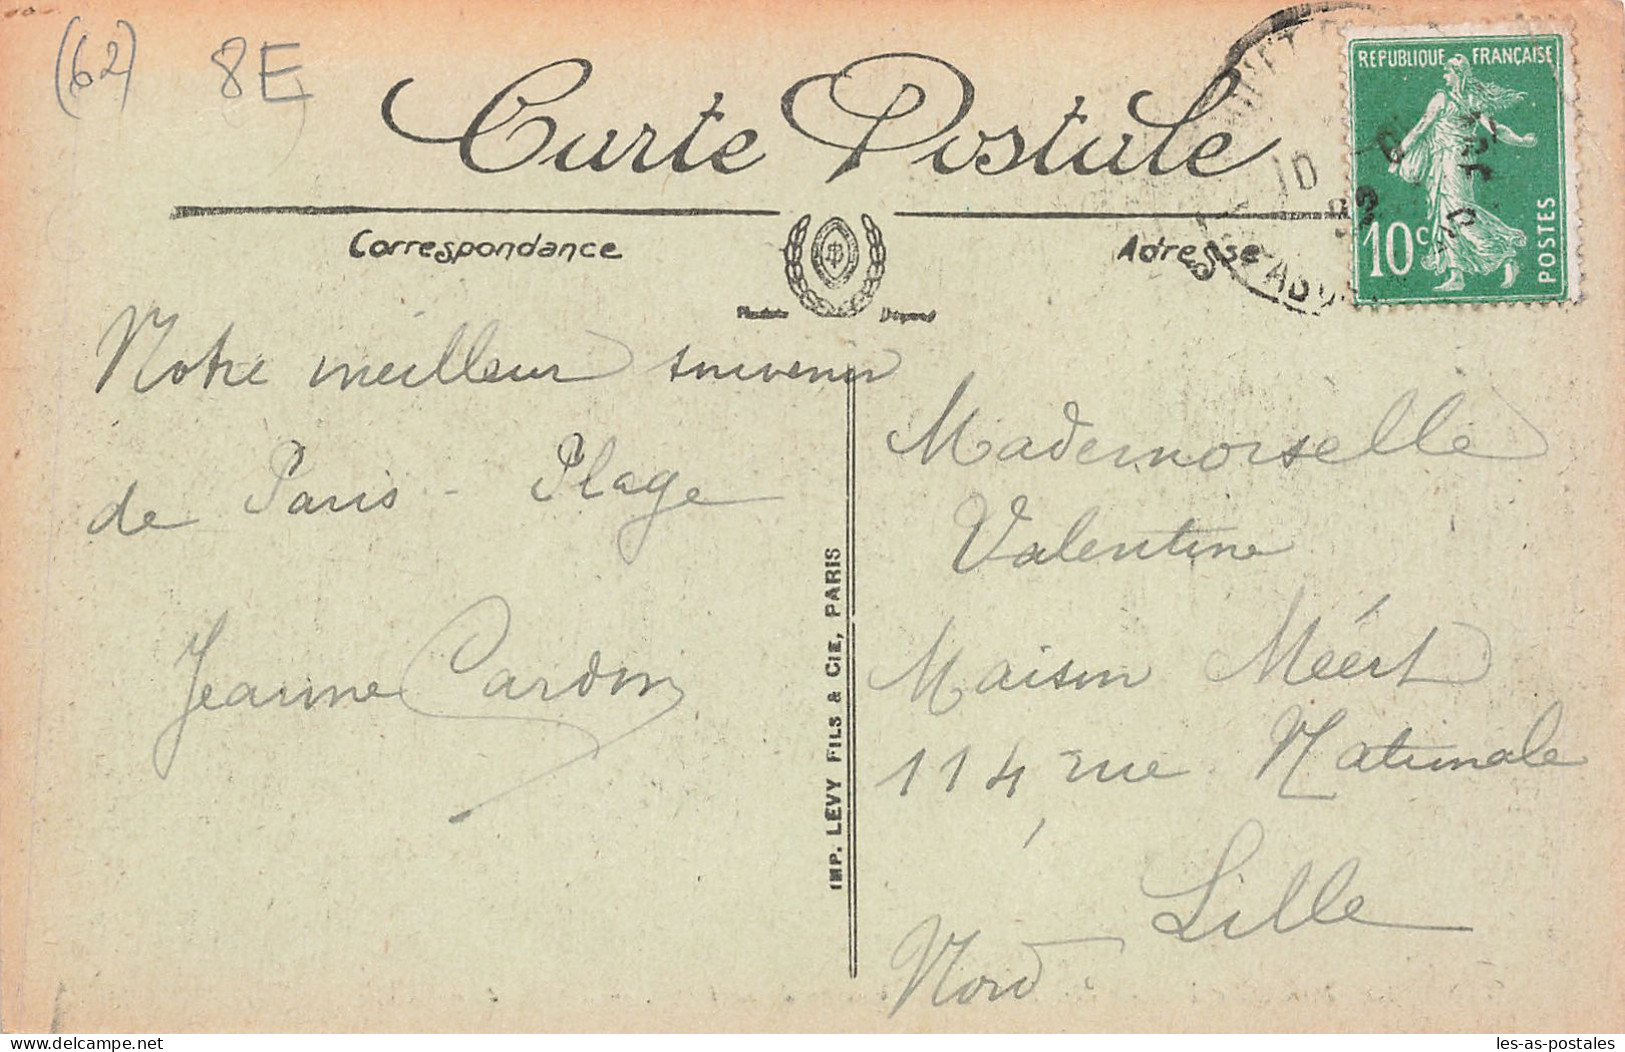 (62) 8E
Carte Postale
REPUBLIQUE FRANÇAISE
10c
POSTES
Correspondance
Adresse
Notre meilleur souvenir
de Paris - Plage
Jeanne Cardon
IMP. LEVY FILS & CIE, PARIS
Mademoiselle
Valentine
Maison Méert
114 rue Nationale
Lille
Nord
delcampe.net
les-as-postales